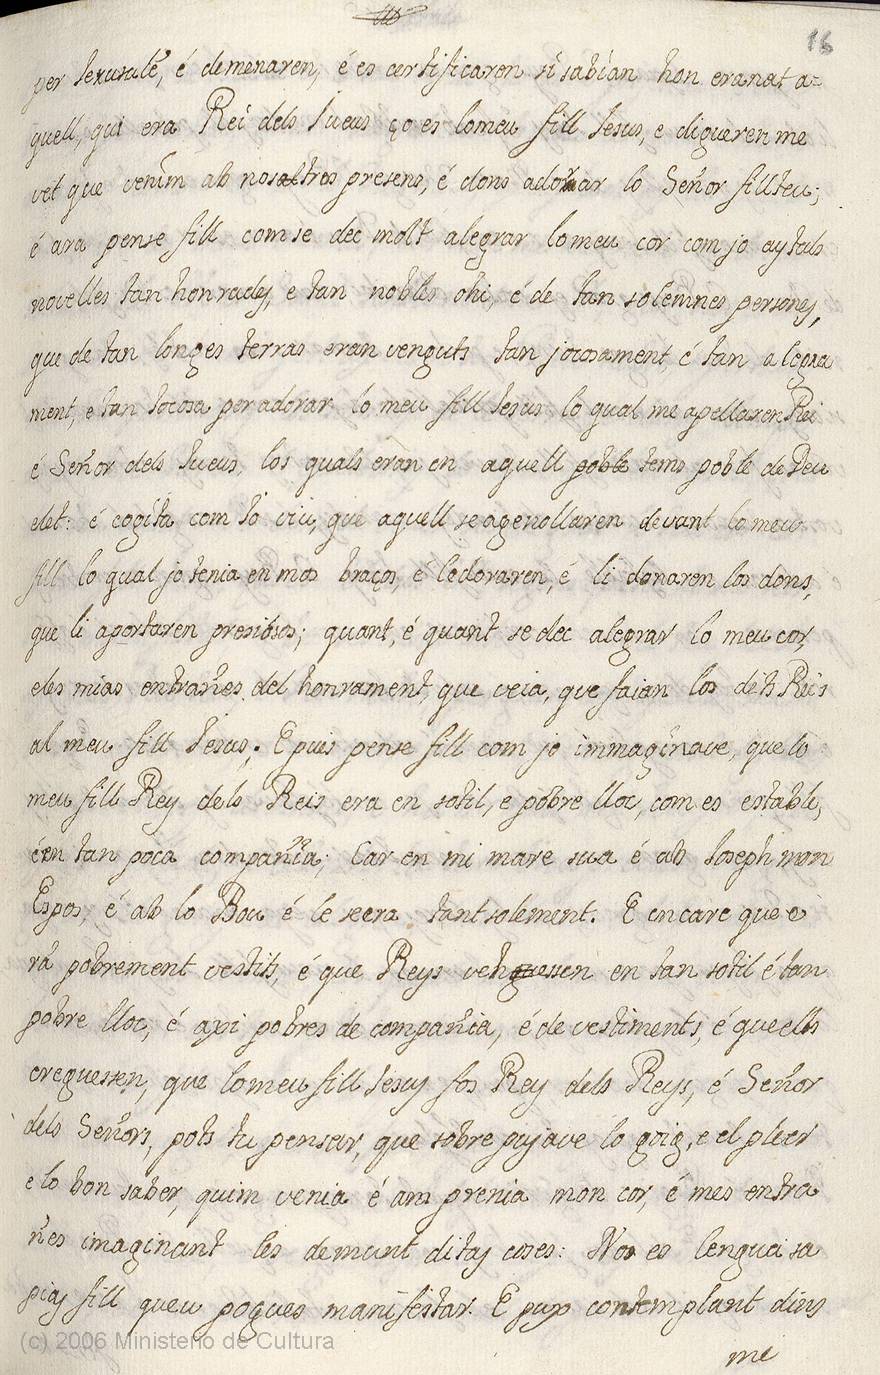 16
per Jerusalē, é demenaren, é es certificaren si sabian hon era nat a=
quell, qui era Rei dels Jueus ço es lo meu fill Jesus, e digueren me
vet que venim ab nosaltros presens, é dons adorar lo Señor fill teu;
é ara pense fill com se dec molt alegrar lo meu cor com jo aytals
novelles tan honrades, e tan nobles ohi, é de tan solemnes persones,
que de tan longes terras eran venguts tan jocosament é tan alegra
ment, e tan Jocosa per adorar lo meu fill Jesus lo qual me apellaren Rei
é Señor dels Jueus, los quals eran en aquell poble tems poble de Deu
elet: é cogita com Jo viu, que aquell se agenollaren devant lo meu
fill lo qual jo tenia en mos braços, é le doraren, é li donaren los dons,
que li aportaren presiosos; quant, é quant se dec alegrar lo meu cor,
e les mias entrañes del honrament, que veia, que faian los dits Reis
al meu fill Jesus. E puis pense fill com jo immaginave, que lo
meu fill Rey dels Reis era en sotil, e pobre lloc, com es estable,
é en tan poca compañia; Car en mi mare sua é ab Joseph mon
Espos, é ab lo Bou é le seera tant solement. E encare que e
ra pobrement vestits, é que Reys venguessen en tan sotil é tan
pobre lloc, é axi pobres de compañia, é de vestiments, é que ells
creguessen, que lo meu fill Jesus fos Rey dels Reys, é Señor
dels Señors, pots tu pensar, que sobre pujave lo goig, e el pleer
e lo bon saber, quim venia é am prenia mon cor, é mes entra
ñes imaginant les demunt ditas coses: No es lengua sa
pias fill queu pogues manifestar. E puys contemplant dins
me
(c) 2006 Ministerio de Cultura